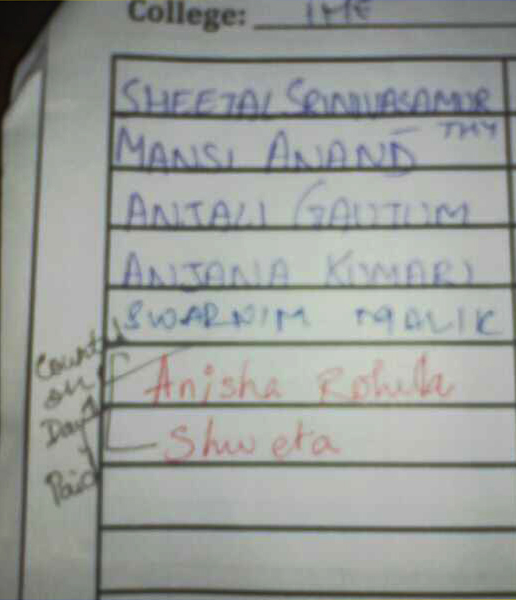 College: IME
SHEETAL SRINIVASAMUR
THY
MANSI ANAND
ANJALI GAUTUM
ANJANA KUMARI
SWARNIM MALIK
Anisha Rohilla
Shweta
County
on
Day
Paid